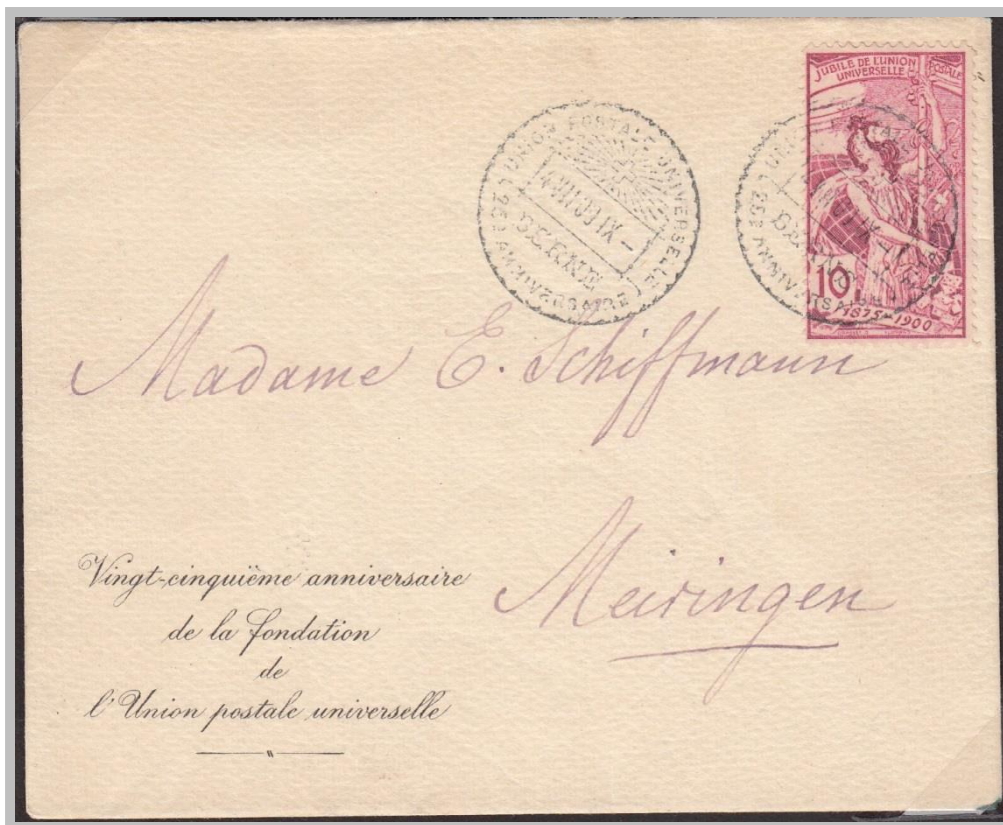 JUBILÉ DE L'UNION POSTALE
UNIVERSELLE
10
1875-1900
UNION POSTALE UNIVERSELLE
BERNE
25E ANNIVERSAIRE
UNION
BERNE
25E ANNIVERSAIRE
Madame E. Schiffmann
Meiringen
Vingt-cinquième anniversaire
de la fondation
de
l'Union postale universelle